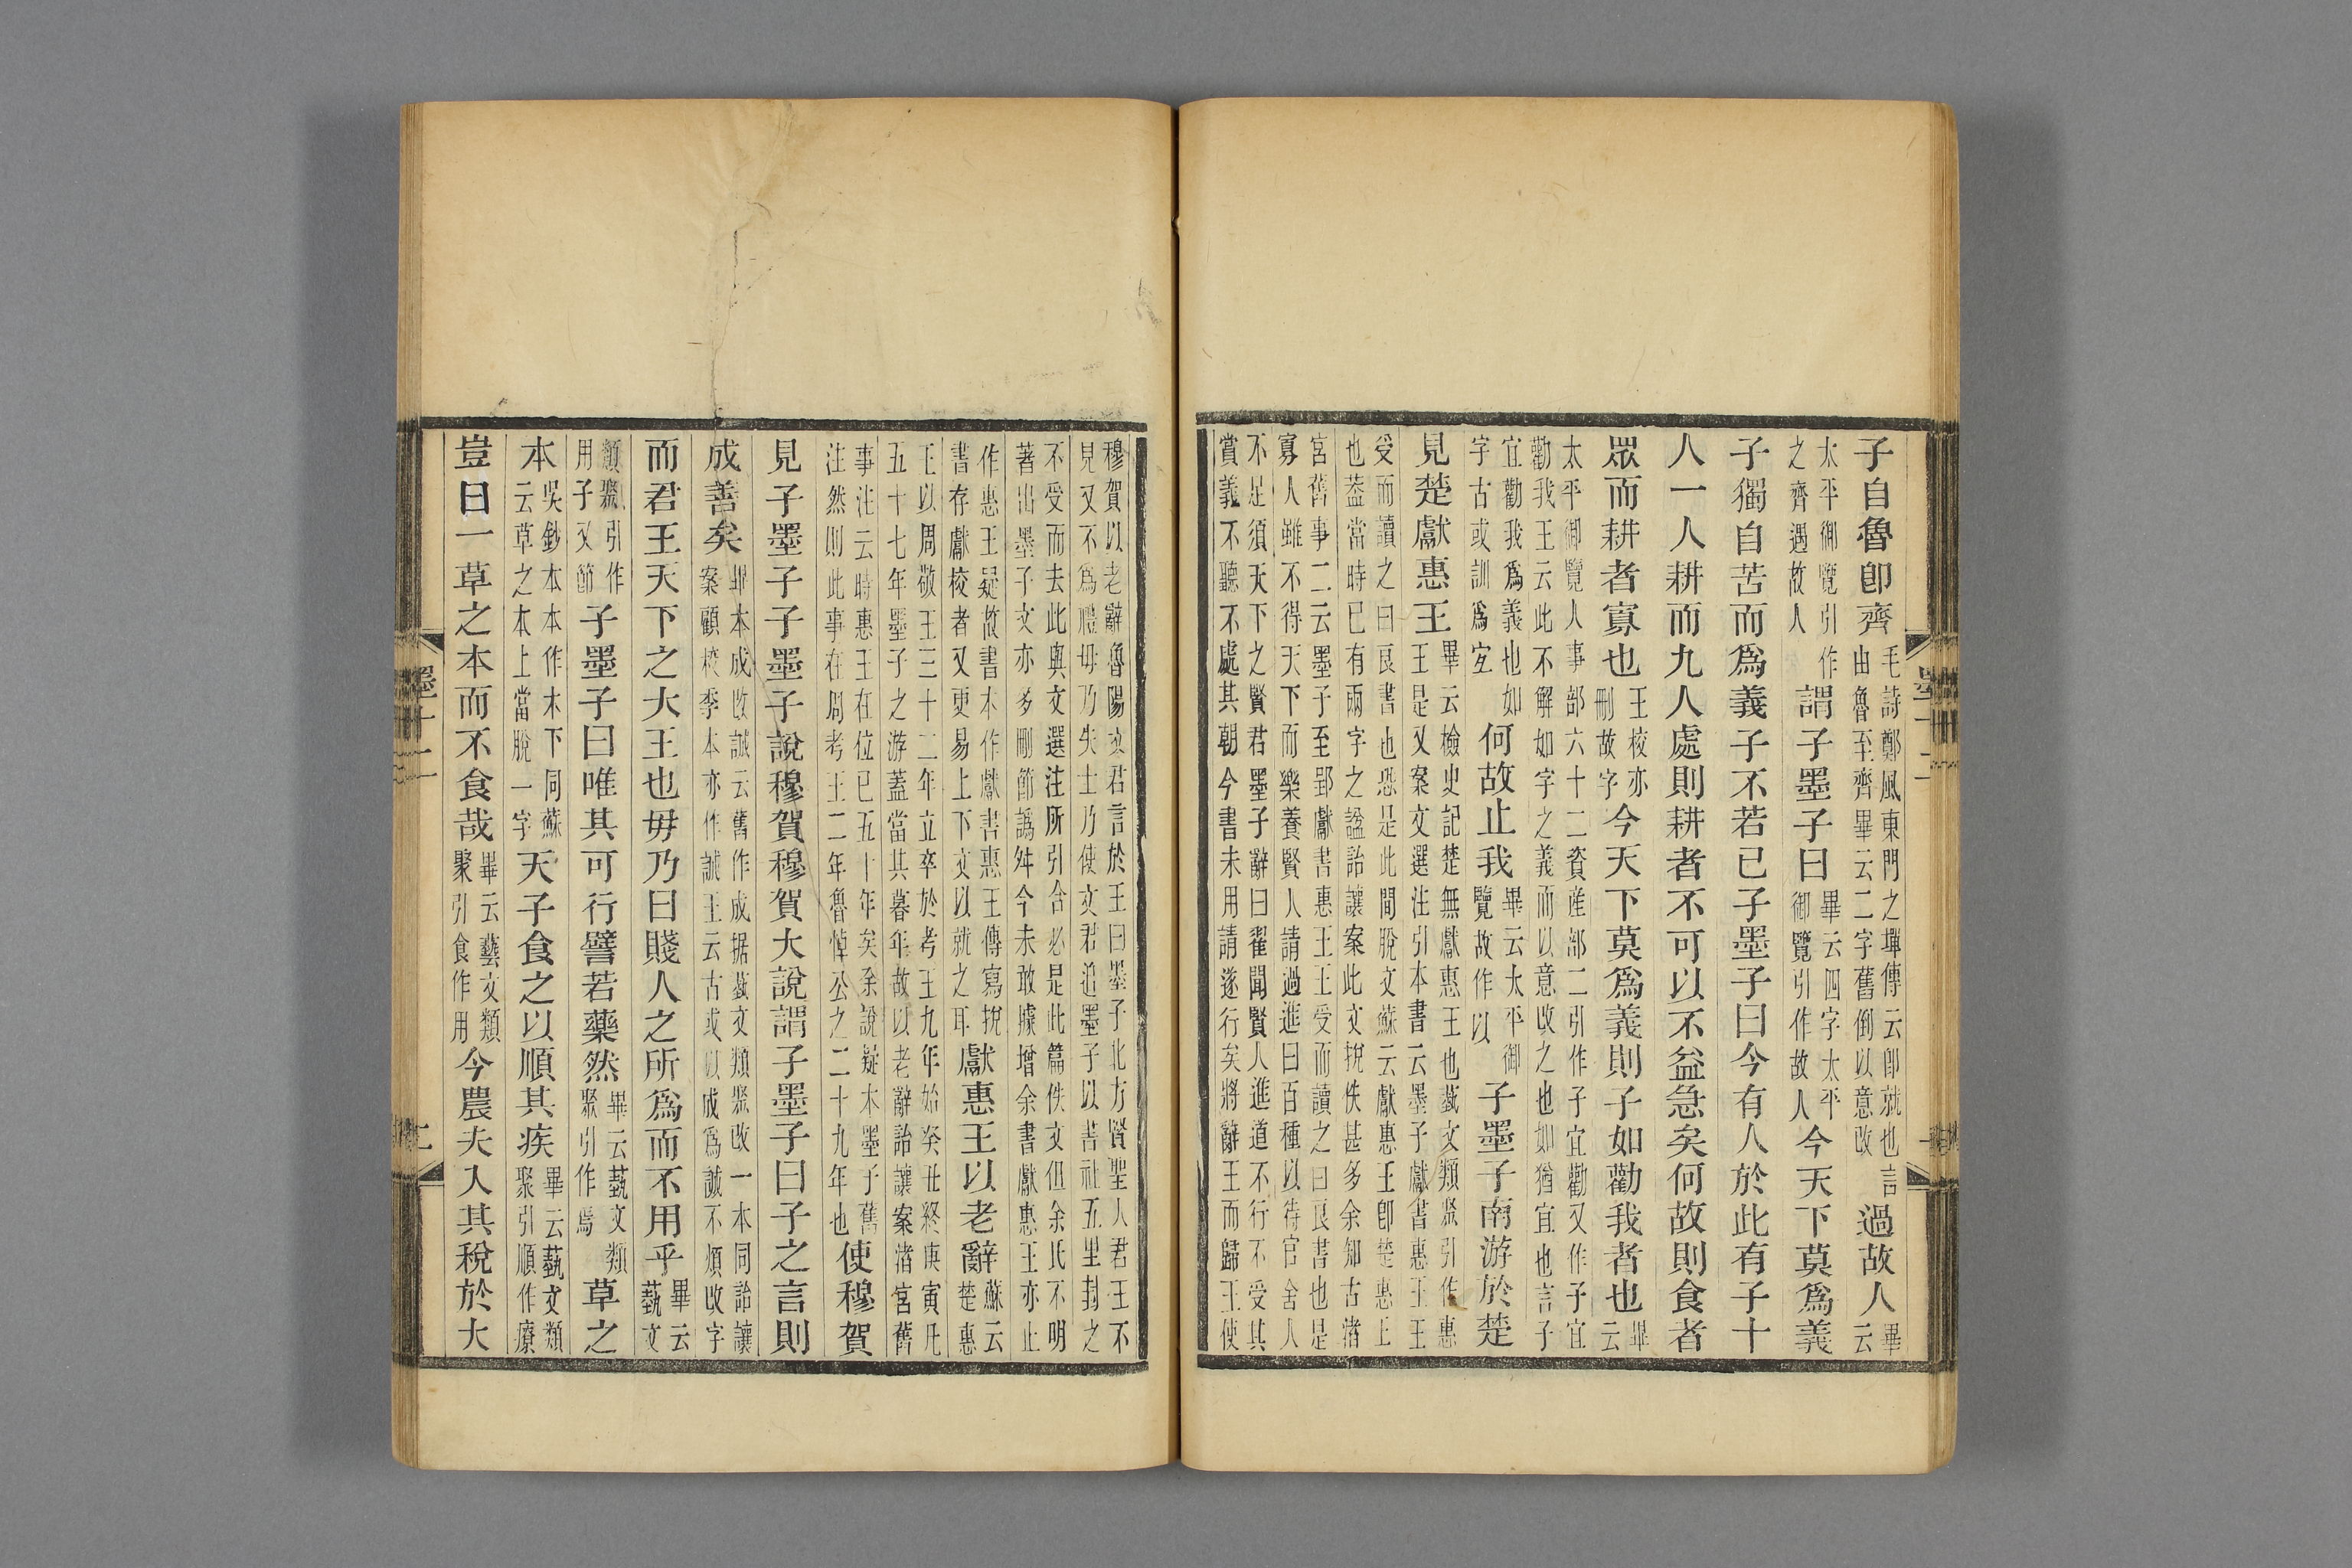 子自魯卽齊毛詩鄭風東門之墠傳云卽就也言由魯至齊畢云二字舊倒以意改過故人畢云
太平御覽引作之齊遇故人謂子墨子曰畢云四字太平御覽引作故人今天下莫爲義
子獨自苦而爲義子不若已子墨子曰今有人於此有子十
人一人耕而九人處則耕者不可以不益急矣何故則食者
眾而耕者寡也王校亦刪故字今天下莫爲義則子如勸我者也畢云
太平御覽人事部六十二資產部二引作子宜勸又作子宜勸我王云此不解如字之義而以意改之也如猶宜也言子
宜勸我爲義也如字古或訓爲宜何故止我畢云太平御覽故作以子墨子南游於楚
見楚獻惠王畢云檢史記楚無獻惠王也藝文類聚引作惠王是又案文選注引本書云墨子獻書惠王王
受而讀之曰良書也恐是此間脫文蘇云獻惠王卽楚惠王也蓋當時已有兩字之謚詒讓案此文挩佚甚多余知古渚
宮舊事二云墨子至郢獻書惠王王受而讀之曰良書也是寡人雖不得天下而樂養賢人請過進曰百種以待官舍人
不足須天下之賢君墨子辭曰翟聞賢人進道不行不受其賞義不聽不處其朝今書未用請遂行矣將辭王而歸王使
穆賀以老辭魯陽文君言於王曰墨子北方賢聖人君王不見又不爲禮毋乃失士乃使文君追墨子以書社五里封之
不受而去此與文選注所引合必是此篇佚文但余氏不明著出墨子文亦多刪節譌舛今未敢據增余書獻惠王亦止
作惠王疑故書本作獻書惠王傳寫挩書存獻校者又更易上下文以就之耳獻惠王以老辭蘇云楚惠
王以周敬王三十二年立卒於考王九年始癸丑終庚寅凡五十七年墨子之游蓋當其暮年故以老辭詒讓案渚宮舊
事注云時惠王在位已五十年矣余說疑本墨子舊注然則此事在周考王二年魯悼公之二十九年也使穆賀
見子墨子子墨子說穆賀穆賀大說謂子墨子曰子之言則
成善矣畢本成改誠云舊作成据藝文類聚改一本同詒讓案顧校季本亦作誠王云古或以成爲誠不煩改字
而君王天下之大王也毋乃曰賤人之所爲而不用乎畢云藝文
類聚引作用子又節子墨子曰唯其可行譬若藥然畢云藝文類聚引作焉草之
本吳鈔本本作木下同蘇云草之本上當脫一字天子食之以順其疾畢云藝文類聚引順作療
豈曰一草之本而不食哉畢云藝文類聚引食作用今農夫入其稅於大
墨十二
墨十二
二